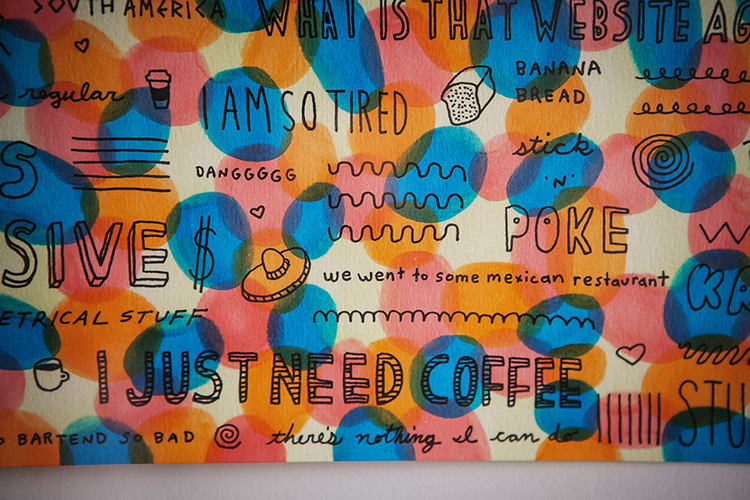 SOUTH AMERICA
WHAT IS THAT WEBSITE AG
regular
I AM SO TIRED
BANANA
BREAD
stick
'N'
POKE
DANGGGGG
S
SIVE $
we went to some mexican restaurant
KA
ETRICAL STUFF
I JUST NEED COFFEE
STU
O BARTEND SO BAD
there's nothing I can do